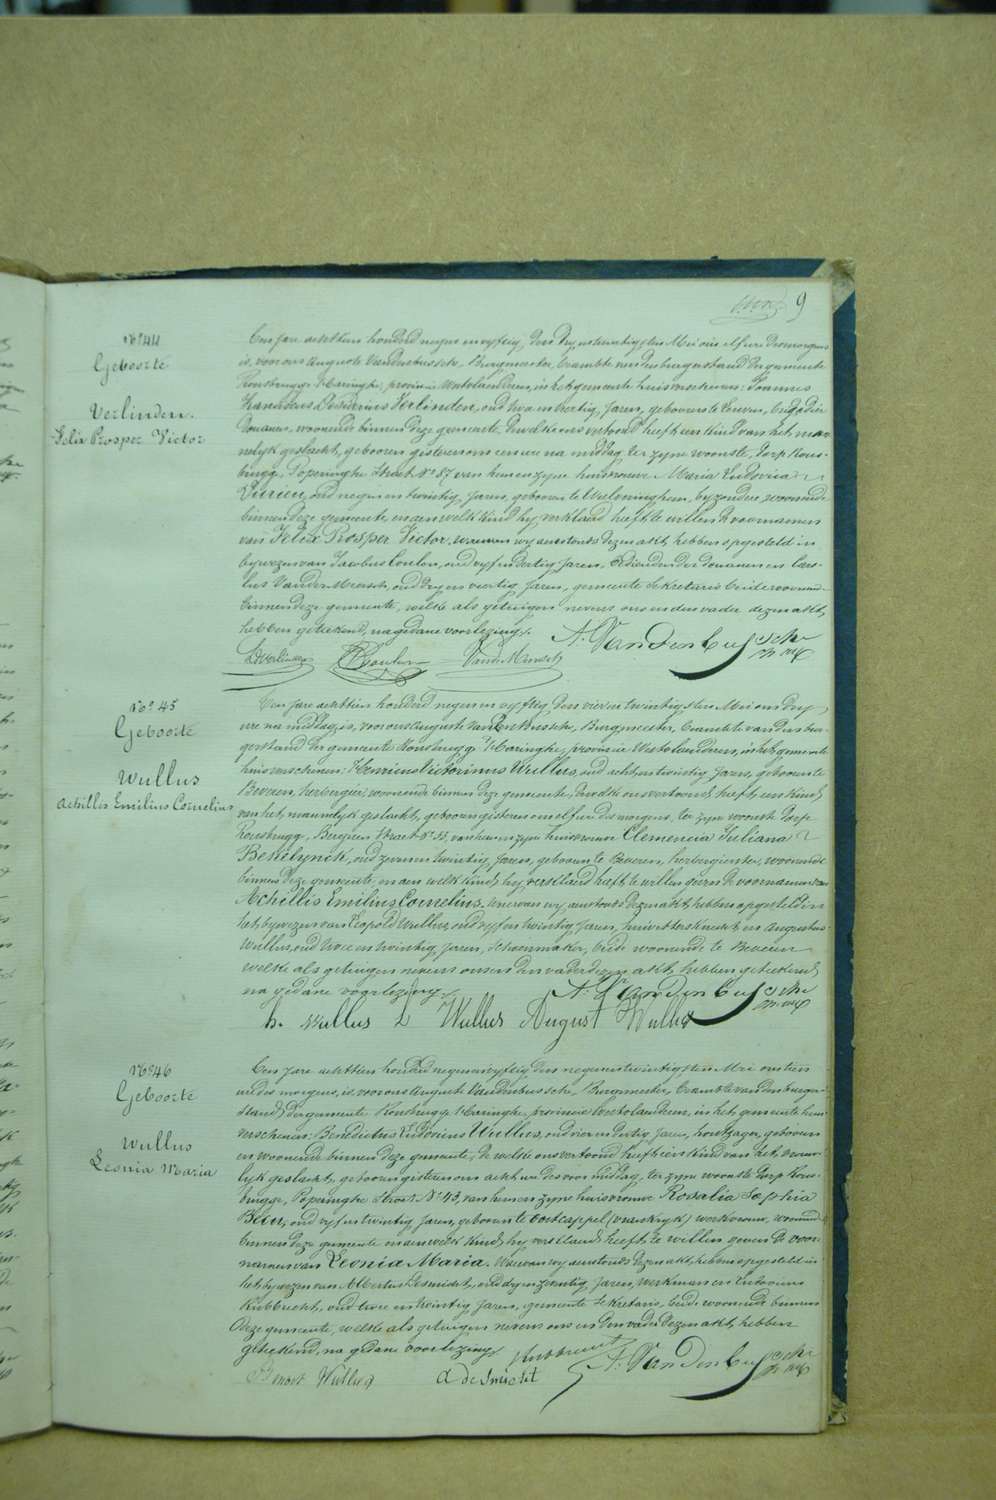 9
N° 44
Geboorte
Verlinden.
Felix Prosper Victor
Den jare achttien honderd negen en vyftig, den dry entwintigsten Mei om elf ure des morgens
is, voor ons Auguste Vandenbussche, Burgmeester, Beambte van den burgerstand der gemeente
Rousbrugge Haringhe, provincie Westvlaenderen, in het gemeente huis verschenen: Joannes
Franciscus Desiderius Verlinden, oud twa en dertig Jaren, geboren te Leuven, brigadier
Douanen, woonende binnen deze gemeente, Dewelke ons vertoond heeft een kind van het man-
nelyk geslacht, geboren gisteren om een ure na middag, ter zyne woonste, Dorp Rous-
brugge, Poperinghe Straet N° 87 van hem en zyne huisvrouwe Maria Ludovica
Durieu, oud negen en twintig Jaren, geboren te Wulveringhem, byzondere, woonende
binnen deze gemeente, en aen welk kind hy verklaard heeft te willen de voornamen
van Felix Prosper Victor, waervan wy aenstonds dezen akt hebben opgesteld in
bywezen van Jacobus Coulon, oud vyf en dertig Jaren, bediende der Douanen en Caro-
lus Vander Meersch, oud dry en veertig Jaren, gemeente Sekretaris beide woonende
binnen deze gemeente, welke als getuigen nevens ons en den vader dezen akt,
hebben geteekend, na gedane voorlezing.
A. Vandenbussche
D. Verlinden Coulon Vander Meersch
N° 45
Geboorte
Wullus
Achillis Emilius Cornelius
Den jare achttien honderd negen en vyftig, den vier en twintigsten Mei om dry
ure na middag, is, voor ons Auguste Vandenbussche, Burgmeester, Beambte van den bur-
gerstand der gemeente Rousbrugge Haringhe, provincie Westvlaenderen, in het gemeente
huis verschenen: Henricus Victorinus Wullus, oud acht en twintig Jaren, geboren te
Beveren, herbergier, woonende binnen deze gemeente, Dewelke ons vertoond heeft, een kind
van het mannelyk geslacht, geboren gisteren om elf ure des morgens, ter zyne woonste Dorp
Rousbrugge, Bergen Straet N° 55, van hem en zyne huisvrouw Clemencia Juliana
Bekelynck, oud zeven en twintig Jaren, geboren te Beveren, herbergierster, woonende
binnen deze gemeente en aen welk kind, hy verklaerd heeft te willen geven de voornamen van
Achillis Emilius Cornelius. Waervan wy aenstonds dezen akt hebben opgesteld in
het bywezen van Leopold Wullus, oud vyf en twintig Jaren, huivetters knecht en Augustus
Wullus, oud twee en twintig Jaren, Schoenmaker, beide woonende te Beveren
welke als getuigen nevens ons en den vader dezen akt, hebben geteekend,
na gedane voorlezing.
A. Vandenbussche
h. Wullus L Wullus August Wullus
N° 46
Geboorte
Wullus
Leonia Maria
Den jare achttien honderd negen en vyftig den negen en twintigsten Mei om tien
ure des morgens, is, voor ons Auguste Vandenbussche, Burgmeester, Beambte van den burger-
stand, der gemeente Rousbrugge Haringhe, provincie Westvlaenderen, in het gemeente huis
verschenen: Benedictus Ludovicus Wullus, oud vier en dertig Jaren, houtzager, geboren
en woonende binnen deze gemeente, de welke ons vertoond heeft een kind van het vrouwe-
lyk geslacht, geboren gisteren om acht ure des voor middag, ter zyne woonste Dorp Rous-
brugge, Poperinghe Straet N° 43, van hem en zyne huisvrouwe Rosalia Sophia
oud vyf en twintig Jaren, geboren te Oostcappel (vrankryk) werkvrouw, woonende
binnen deze gemeente en aen welk kind, hy verklaerd heeft, te willen geven de voor-
namen van Leonia Maria. Waervan wy aenstonds dezen akt hebben opgesteld in
het bywezen van Albertus Desmidt, oud dry en zeventig Jaren, werkman en
Rubbrecht, oud twee en twintig Jaren, gemeente Sekretaris, beide woonende binnen
deze gemeente, welke als getuigen nevens ons en den vader dezen akt, hebben
geteekend, na gedane voorlezing.
Rubbrecht A. Vandenbussche
Benoot Wullus A de Smedt